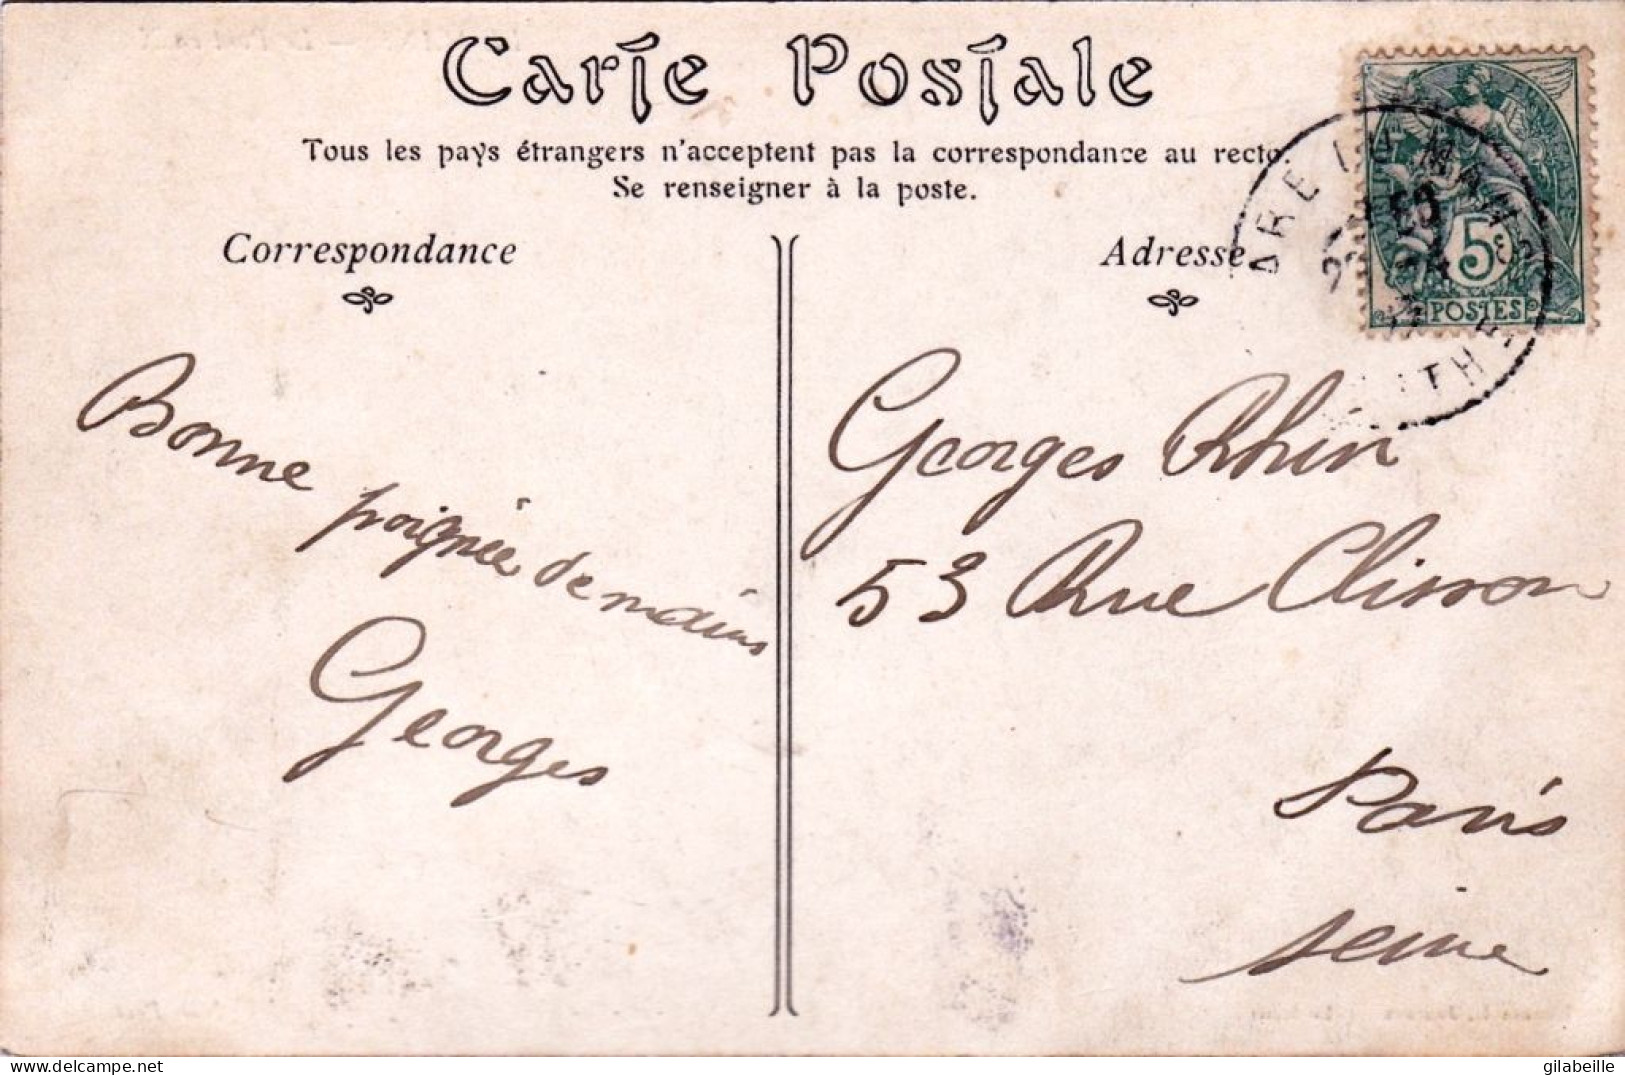 Carte Postale
Tous les pays étrangers n'acceptent pas la correspondance au recto.
Se renseigner à la poste.
Correspondance
Adresse
5c
POSTES
Bonne poignée de mains
Georges
Georges Rhin
53 Rue Clisson
Paris
Seine
gilabeille